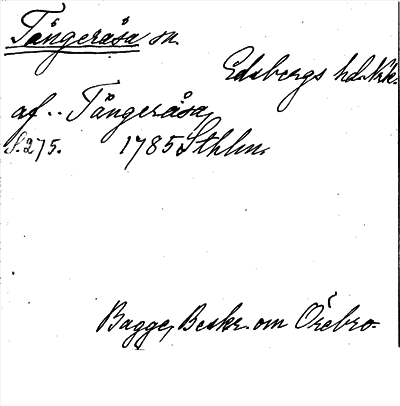 Tångeråsa sn.
Edsbergs hd. Nke.
af .. Tångeråsa,
S. 275. 1785 Sthlm.
Bagge, Beskr. om Örebro.